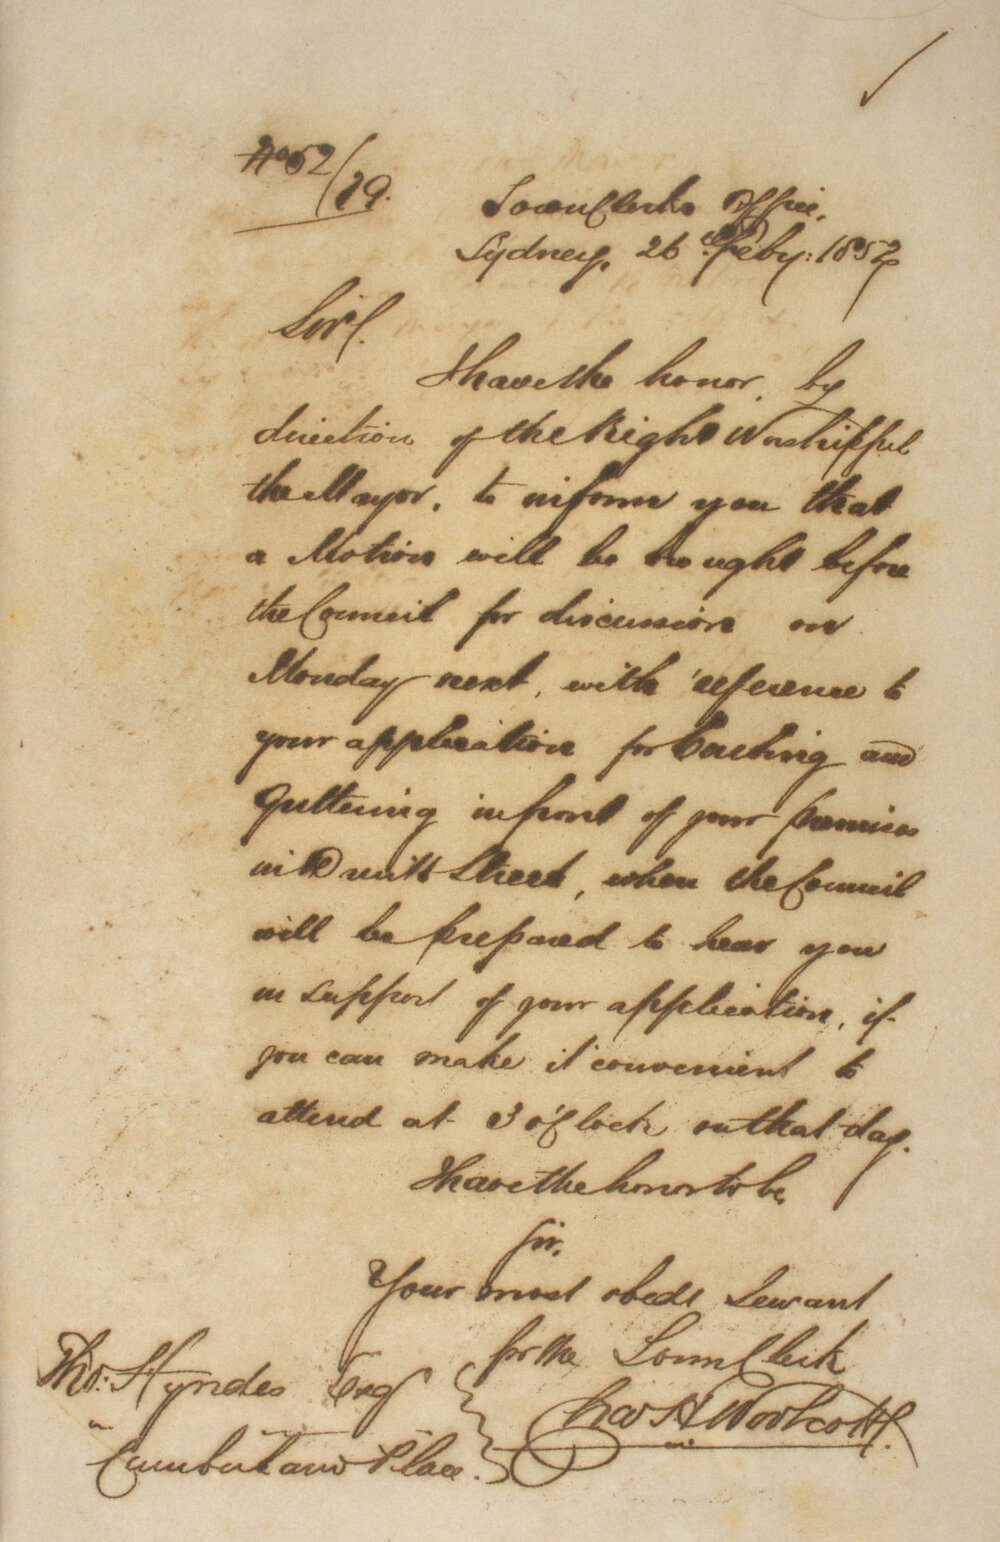 No 52/19.
Town Clerks Office,
Sydney, 26th Feby: 1852
Sir,
I have the honor, by
direction of the Right Worshipful
the Mayor, to inform you that
a Motion will be brought before
the Council for discussion on
Monday next, with reference to
your application for Curbing and
Guttering in front of your premises
in Druitt Street, when the Council
will be prepared to hear you
in support of your application, if
you can make it convenient to
attend at 3 o'Clock on that day.
I have the honor to be,
Sir,
Your most obedt Servant
for the Town Clerk
Chas H Woolcott
Thos: Hyndes Esq
Cumberland Place.